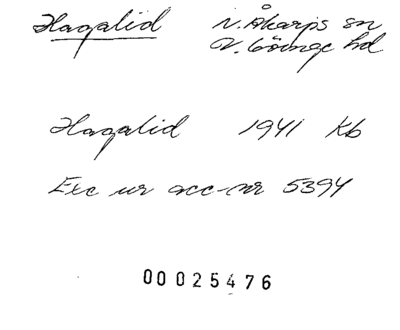 Hagalid N. Åkarps sn
V. Göinge hd
Hagalid 1941 Kb
Exc ur acc-nr 5394
00025476